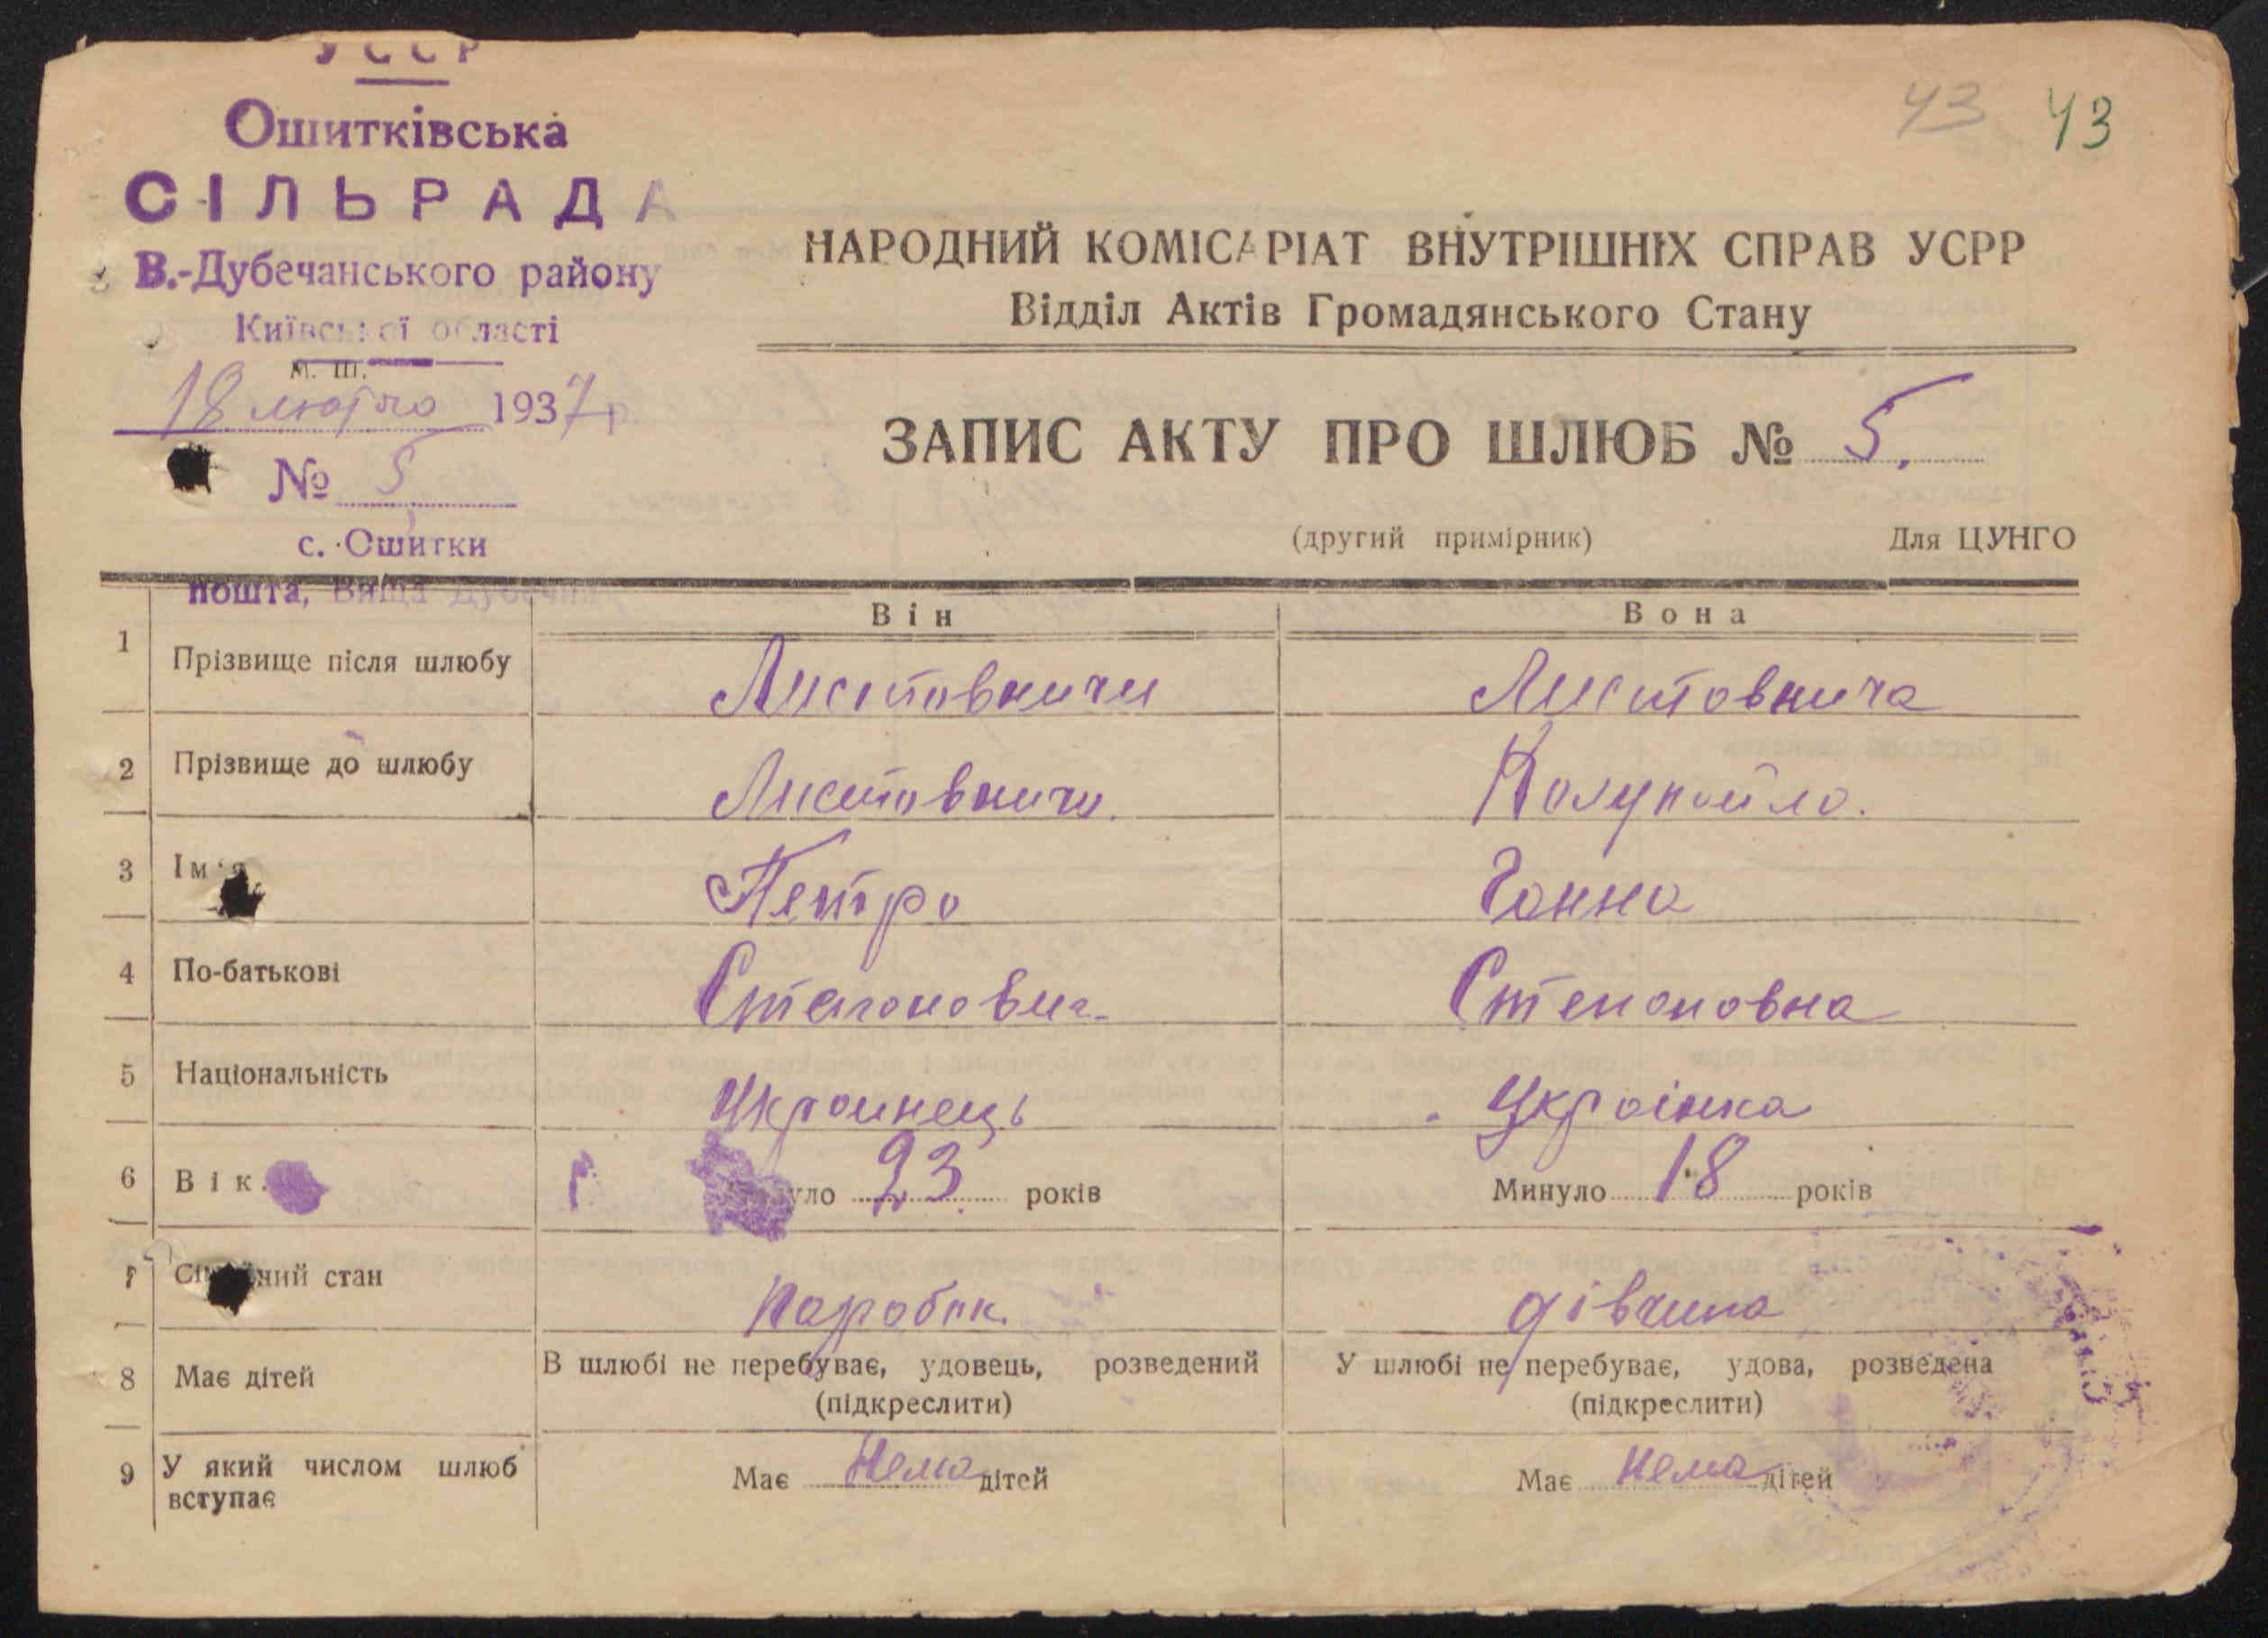 УССР
Ошитківська
СІЛЬРАДА
В.-Дубечанського району
Київської області
М. Ш.
18 лютого 1937 р.
№ 5
с. Ошитки
пошта, Вища Дубечня
43 43
НАРОДНИЙ КОМІСАРІАТ ВНУТРІШНІХ СПРАВ УСРР
Відділ Актів Громадянського Стану
ЗАПИС АКТУ ПРО ШЛЮБ № 5.
(другий примірник) Для ЦУНГО
Він Вона
1 Прізвище після шлюбу Листовничи Листовнича
2 Прізвище до шлюбу Листовничи. Колупайло.
3 Ім'я Петро Ганна
4 По-батькові Степанович Степановна
5 Національність Украинець Украінка
6 Вік. Минуло 23 років Минуло 18 років
7 Сімейний стан Паробок. дівчина
8 Має дітей В шлюбі не перебуває, удовець, розведений У шлюбі не перебуває, удова, розведена
(підкреслити) (підкреслити)
9 У який числом шлюб Має Нема дітей Має Нема дітей
вступає